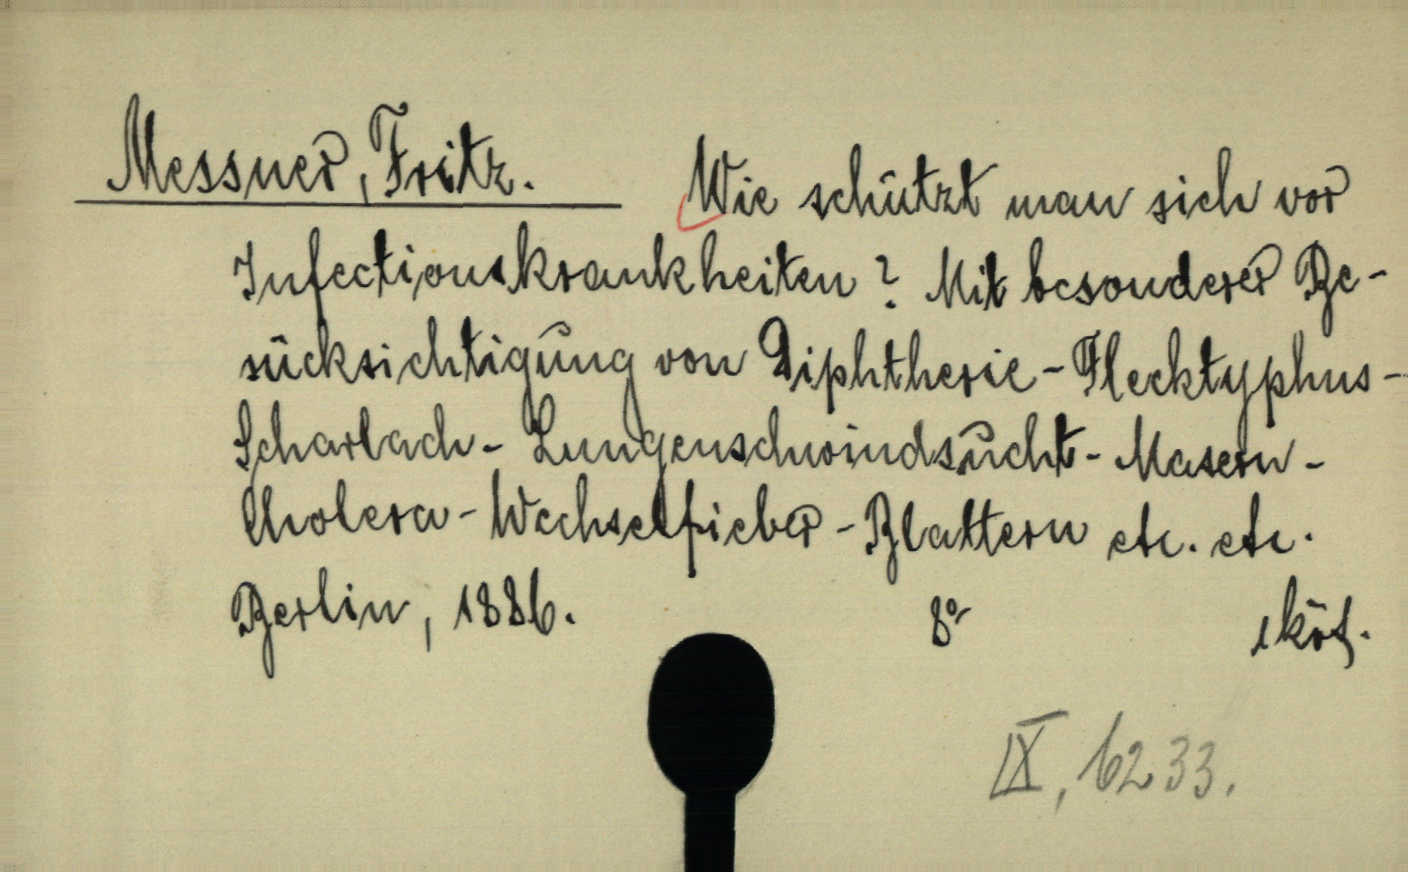 Messner, Fritz. Wie schützt man sich vor
Infectionskrankheiten? Mit besonderer Be-
rücksichtigung von Diphtherie - Flecktyphus -
Scharlach - Lungenschwindsucht - Masern -
Cholera - Wechselfieber - Blattern etc. etc.
Berlin, 1886. 8° 1 köt.
IX, 6233.